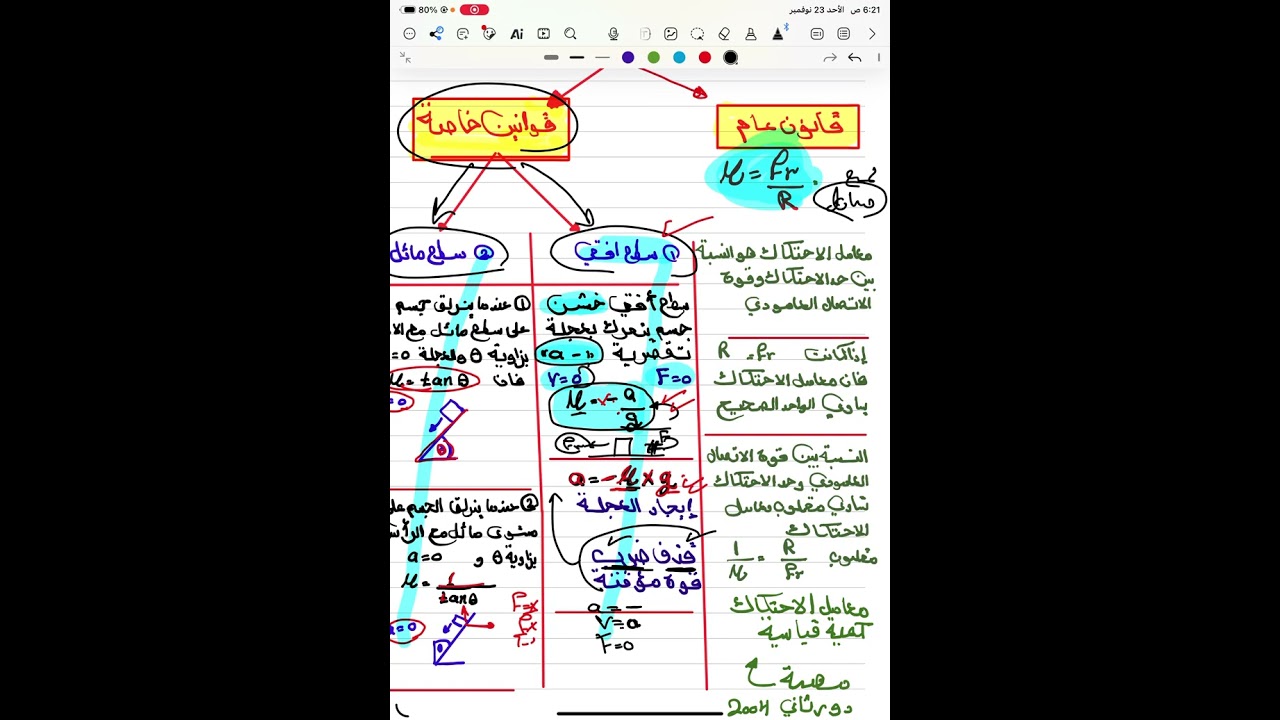 6:21 ص الأحد 23 نوفمبر
80%
Ai
قانون عام
قوانين خاصة
μ = Fr / R
معامل الاحتكاك هو النسبة
بين حد الاحتكاك وقوة
الاتصال العامودي
إذا كانت R = Fr
فان معامل الاحتكاك
يساوي الواحد الصحيح
النسبة بين قوة الاتصال
العامودي وحد الاحتكاك
تساوي مقلوب معامل
الاحتكاك
مقلوب R / Fr = 1 / μ
معامل الاحتكاك
كمية قياسية
مهمة
دور ثاني 2004
① سطح افقي
سطح أفقي خشن
جسم يتحرك بعجلة
تقصرية "a -"
F=0 V=0
μ = - a / g
a = -μ x g
إيجاد العجلة
قذف ضرب
قوة مؤقتة
a = -
V = a
F=0
② سطح مائل
① عندما ينزلق جسم
على سطح مائل مع الا
بزاوية θ والعجلة =0
فان μ = tan θ
=0
θ
② عندما ينزلق الجسم على
مستوى مائل مع الرأس
بزاوية θ و a=0
μ = 1 / tan θ
a=0
θ